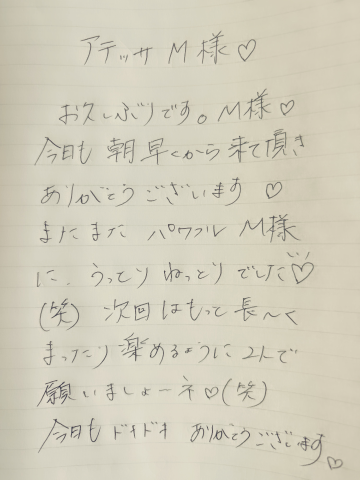 アテッサ M様♡
お久しぶりです。M様♡
今日も 朝早くから来て頂き
ありがとうございます ♡
まだまだ パワフル M様
に、うっとり ねっとり でした♡
(笑) 次回はもって長〜く
まったり楽めるように2人で
願いましょーネ♡(笑)
今日も ドキドキ ありがとうございます♡